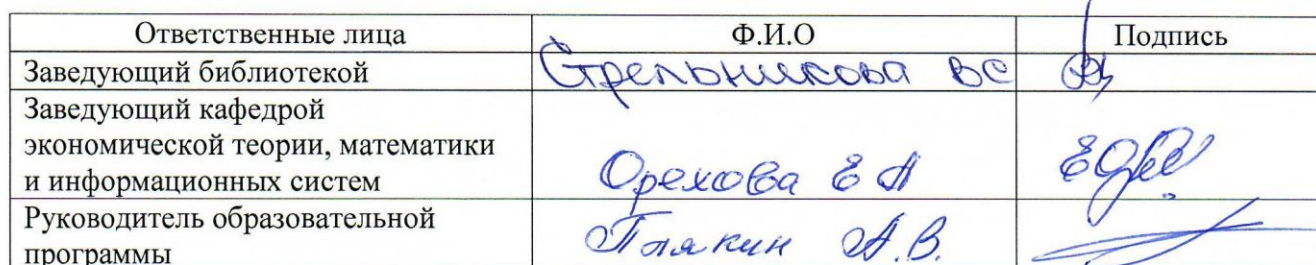 Ответственные лица Ф.И.О Подпись
Заведующий библиотекой Стрельникова ВС
Заведующий кафедрой
экономической теории, математики
и информационных систем Орехова Е А
Руководитель образовательной
программы Плякин А.В.